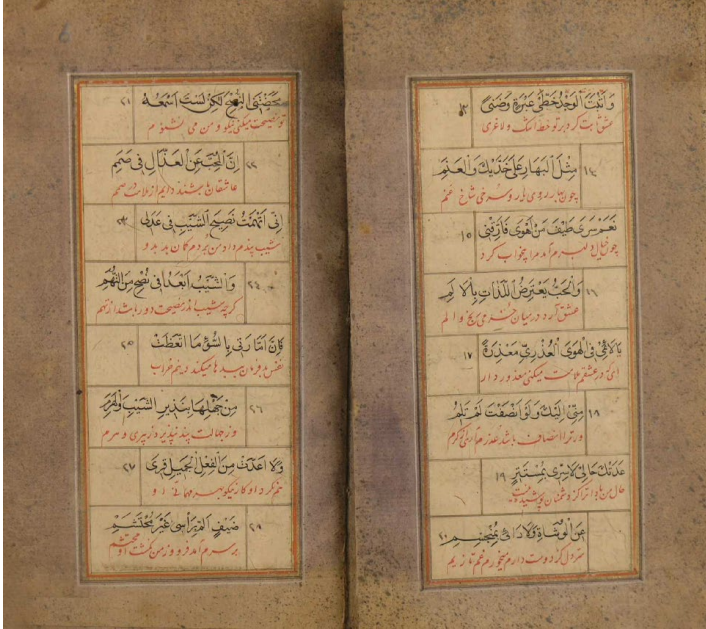 وَاَثْبَتَ الْوَجْدُ خَطَّیْ عَبْرَةٍ وَضَنًی ۱۳
عشق ثابت کرد بر تو خط اشک و لاغری
۱۴ مِثْلَ الْبَهَارِ عَلٰی خَدَّیْكَ وَالْعَنَمِ
چون بهار زردی رو سرخی شاخ عنم
نَعَمْ سَرٰی طَیْفُ مَنْ اَهْوٰی فَاَرَّقَنِی ۱۵
چون خیال دلبرم آمد مرا بیخواب کرد
۱۶ وَالْحُبُّ یَعْتَرِضُ اللَّذَّاتِ بِالْاَلَمِ
عشق آرد در میان خرمی رنج و الم
یَا لَائِمِی فِی الْهَوَی الْعُذْرِیِّ مَعْذِرَةً ۱۷
ای که در عشقم ملامت میکنی معذور دار
۱۸ مِنِّی اِلَیْكَ وَلَوْ اَنْصَفْتَ لَمْ تَلُمِ
ور ترا انصاف باشد عذرم آری کرم
عَدَتْكَ حَالِیَ لَا سِرِّی بِمُسْتَتِرٍ ۱۹
حال من دشمنان پوشیده نیست
عَنِ الْوُشَاةِ وَلَا دَائِی بِمُنْحَسِمِ ۲۰
دوست دارم میخورم غم
مَحَّضْتَنِی النُّصْحَ لٰكِنْ لَسْتُ اَسْمَعُهُ ۲۱
تو نصیحت میکنی نیکو و من می نشنوم
۲۲ اِنَّ الْمُحِبَّ عَنِ الْعُذَّالِ فِی صَمَمِ
عاشقان باشند دایم از ملامت در صمم
اِنِّی اتَّهَمْتُ نَصِیحَ الشَّیْبِ فِی عَذَلِی ۲۳
شیب پندم داد من بردم گمان بد برو
۲۴ وَالشَّیْبُ اَبْعَدُ فِی نُصْحٍ مِنَ التُّهَمِ
گرچه شیب اندر نصیحت دور باشد از تهم
فَاِنَّ اَمَّارَتِی بِالسُّوْءِ مَا اتَّعَظَتْ ۲۵
نفس بد فرمان میکند خراب
۲۶ مِنْ جَهْلِهَا بِنَذِیرِ الشَّیْبِ وَالْهَرَمِ
وز جهالت پند نپذیرد ز پیری و هرم
وَلَا اَعَدَّتْ مِنَ الْفِعْلِ الْجَمِیلِ قِرٰی ۲۷
هم نکرد او کار نیکو بهر مهمانی او
۲۸ ضَیْفٍ اَلَمَّ بِرَاْسِی غَیْرَ مُحْتَشِمِ
بر سرم آمد فرود و ز من نگشت او محتشم